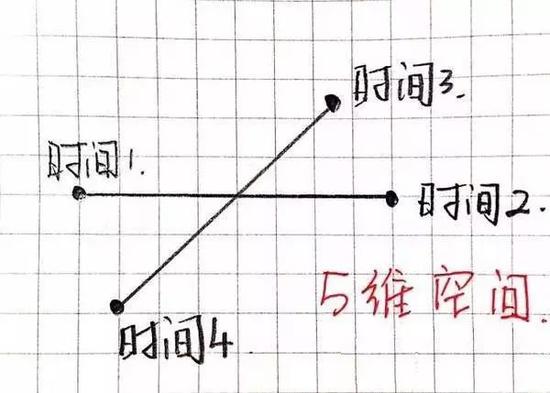 时间3.
时间1.
时间2.
5维空间.
时间4